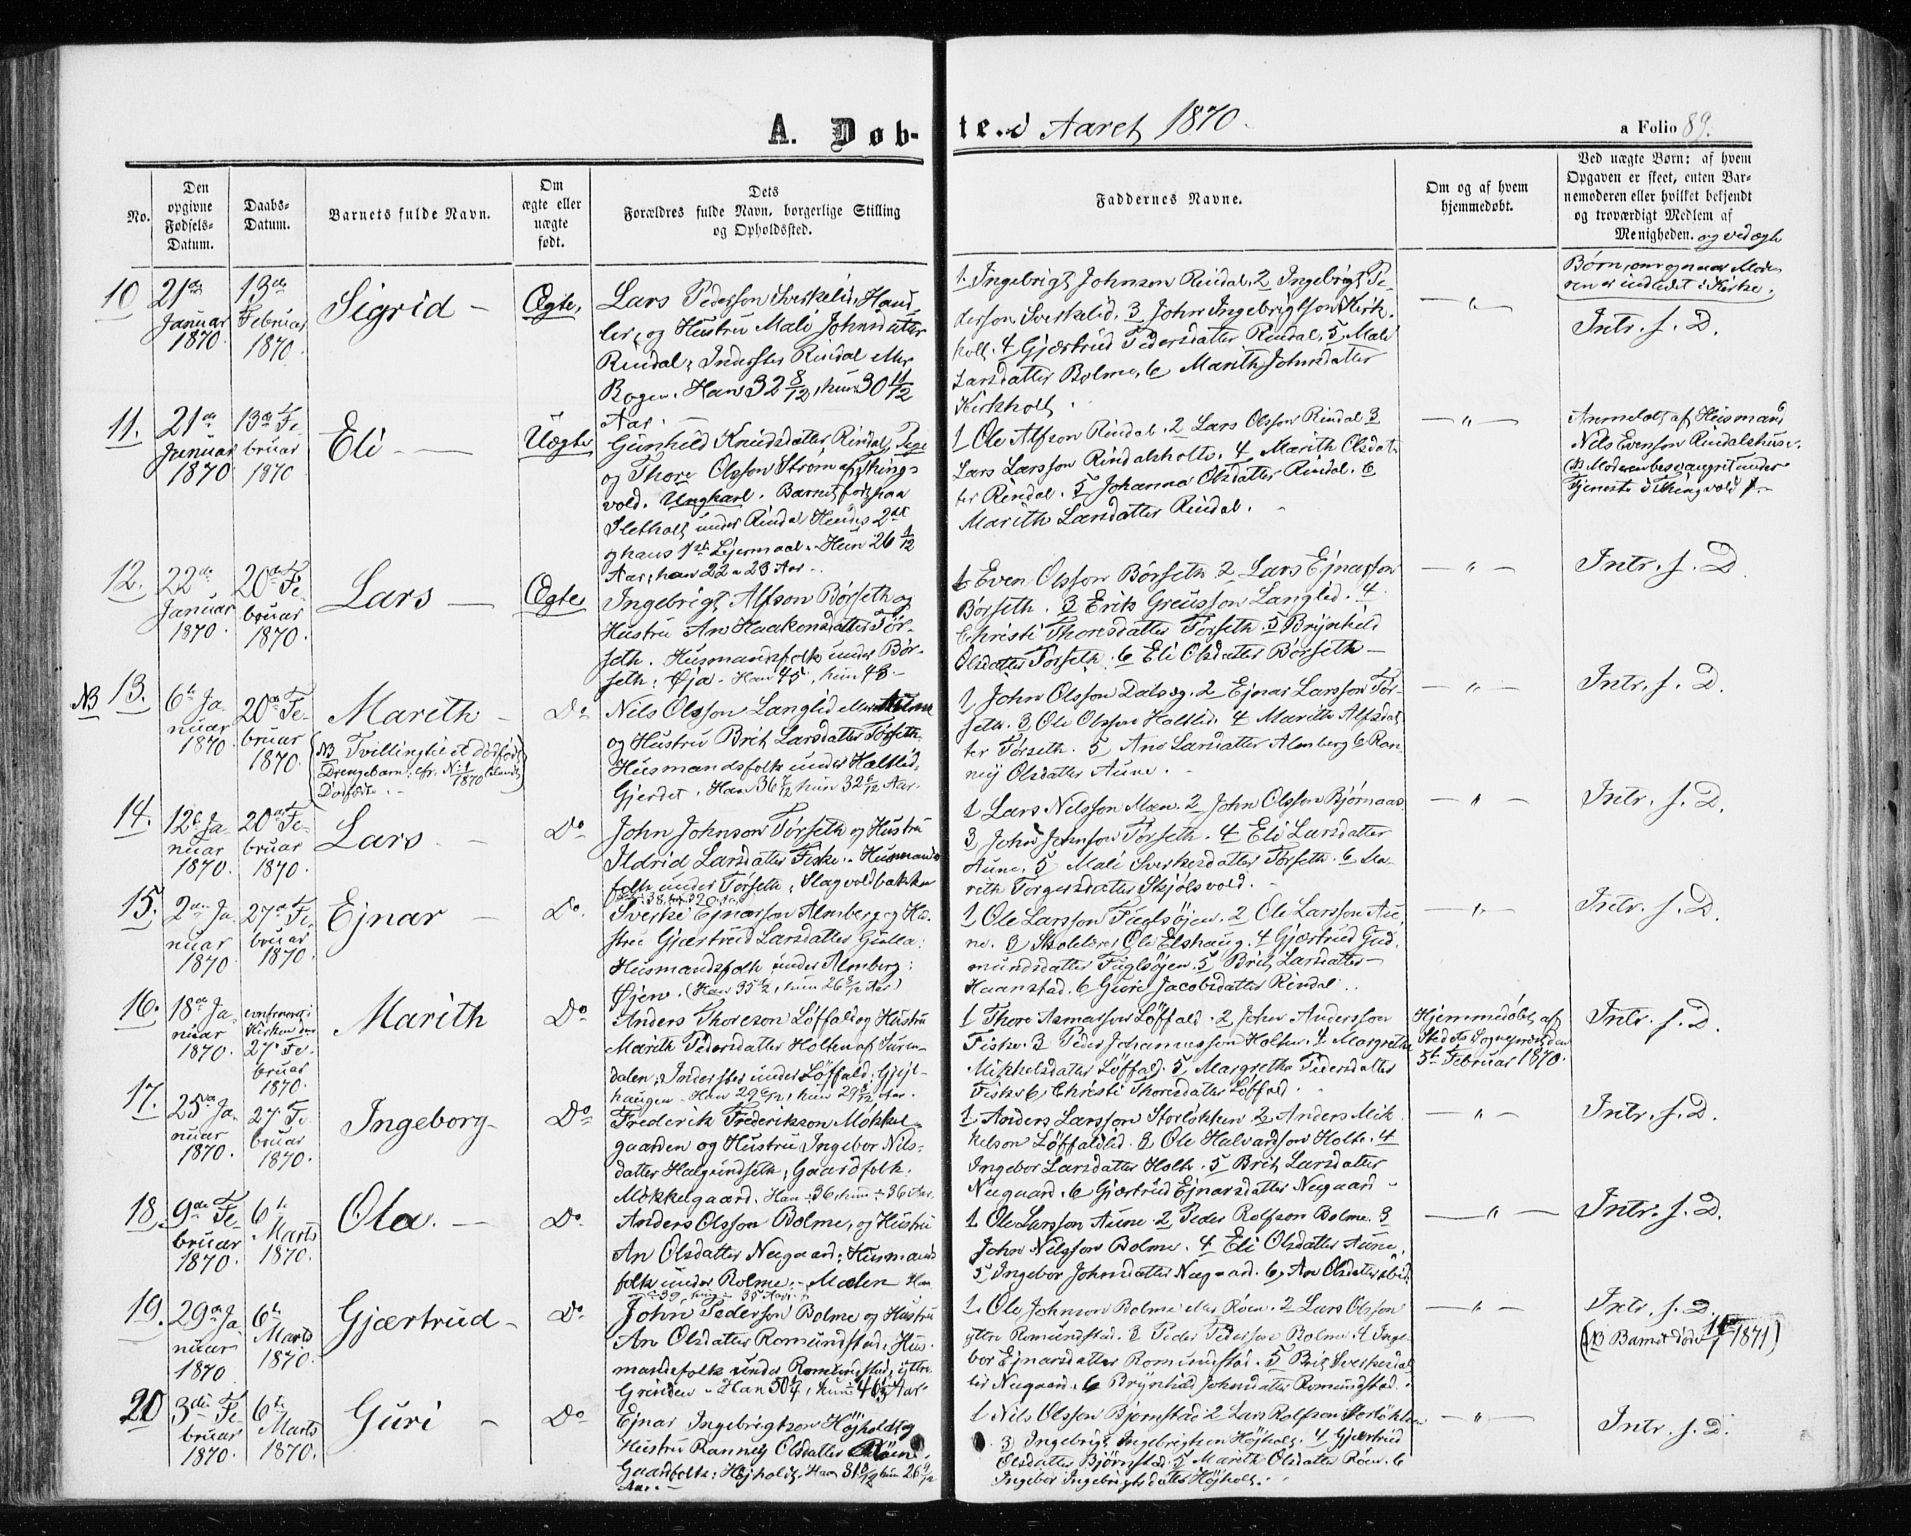 A. Døb-
te. i Aaret 1870.
a Folio 89.
No.
Den opgivne Fødsels-Datum.
Daabs-Datum.
Barnets fulde Navn.
Om ægte eller uægte født.
Dets
Forældres fulde Navn, borgerlige Stilling
og Opholdssted.
Faddernes Navne.
Om og af hvem
hjemmedøbt.
Ved uægte Børn: af hvem
Opgaven er skeet, enten Bar-
nemoderen eller hvilket bekjendt
og troværdigt Medlem af
Menigheden. og ved ægte
Børn, om og naar Mode-
ren er indledet i Kirke.
10
21de
Januar
1870.
13de
Februar
1870.
Sigrid
Ægte,
Lars Pederson Sverkelid, Hand-
ler, og Hustru Mali Johnsdatter
Rindal; Inderster Rindal
Bogen. Han 32 8/12, hun 30 11/12
Aar.
1 Ingebrigt Johnson Rindal. 2 Ingebrigt Pe-
derson Sverkelid. 3 John Ingebrigtson Kirk-
holt. 4 Gjærtrud Pedersdatter Rindal, 5 Mali
Larsdatter Bolme, 6 Marith Johnsdatter
Kirkholt.
Intr. s. D.
11.
21de
Januar
1870
13de Fe-
bruar
1870
Eli
Uægte
Gunhild Knudsdatter Rindal, Pige
og Thore Olsson Strøm af Thing-
vold. Ungkarl. Barnet født paa
Sletholt under Rindal Hendes 2det
og hans 1ste Lejermaal. Hun 26 1/12
Aar, han 22 a 23 Aar.
1 Ole Alfson Rindal. 2 Lars Olsson Rindal 3
Lars Larsson Rindalsholte. 4 Marith Olsdat-
ter Rindal. 5 Johanna Olsdatter Rindal. 6
Marith Larsdatter Rindal.
Anmeldt af Husmand
Nils Evenson Rindalshuse.
Moderen besvangret under
Tjeneste i Thingvold
12.
22de
Januar
1870.
20de Fe-
bruar
1870.
Lars
Ægte
Ingebrigt Alfson Børseth og
Hustru An Haakonsdatter Tør-
seth. Husmandsfolk under Bør-
seth; Øja. Han 45, hun 43
1 Even Olsson Børseth 2 Lars Ejnarson
Børseth. 3 Erik Greusson Langlid. 4
Christi Thoresdatter Torseth. 5 Brynhild
Olsdatter Torseth. 6 Eli Olsdatter Børseth
Intr. s. D.
NB 13.
6te Ja-
nuar
1870.
20de Fe-
bruar
1870
Marith
(NB Tvilling til et dødfødt
Drengebarn; cfr. No 1/1870 blandt
Dødfødte.)
Do
Nils Olsson Langlid
og Hustru Brit Larsdatter Tørseth
Husmandsfolk under Haltlid,
Gjerdet. Han 36 7/12 hun 32 6/12 Aar.
1 John Olsson Dalseg. 2 Ejnar Larsson Tør-
seth. 3 Ole Olsson Haltlid. 4 Marith Alfsdat-
ter Tørseth. 5 Ane Larsdatter Almberg 6 Ran-
nej Olsdatter Aune.
Intr. s. D.
14.
12te Ja-
nuar
1870.
20de Fe-
bruar
1870.
Lars
Do
John Johnson Tørseth og Hustru
Ildrid Larsdatter Fiske. Husmands-
folk under Tørseth; Slagvoldbakken
1 Lars Nilsson Mæn. 2 John Olsson Bjørnaas
3 John Johnson Torseth. 4 Eli Larsdatter
Aune, 5 Mali Sverkesdatter Torseth. 6 Ma-
rith Torgersdatter Skjølsvold.
Intr. s. D.
15.
2den Ja-
nuar
1870.
27de Fe-
bruar
1870.
Ejnar
Do.
Sverke Ejnarson Almberg og Hu-
stru Gjærtrud Larsdatter Gulla:
Husmandsfolk under Almberg:
Øjen. (Han 35, hun 26 Aar)
1 Ole Larsson Fuglsøjen. 2 Ole Larsson Au-
ne. 3 Skolelærer Ole Elshaug. 4 Gjærtrud Gud-
mundsdatter Fuglsøjen. 5 Brit Larsdatter
Haanstad. 6 Guri Jacobsdatter Rindal.
Intr. s. D.
16.
18de Ja-
nuar
1870.
confirmeret i
Kirken den
27de Fe-
bruar
1870
Marith
Do
Anders Thoreson Løffald og Hustru
Marith Pedersdatter Holten af Suren-
dalen; Inderster under Løffald; Gjejl-
haugen. Han 29 6/12, hun 29 Aar.
1 Thore Asmarson Løffald. 2 John Andersson
Fiske. 3 Peder Johannesson Holten. 4 Margrethe
Mikkelsdatter Løffald. 5 Margretha Pedersdatter
Fiske 6 Christi Thoresdatter Løffald.
Hjemmedøbt af
Stedets Sognepræst den
5te Februar 1870.
Intr. s. D.
17.
25de Ja-
nuar
1870.
27de Fe-
bruar
1870.
Ingeborg
Do
Frederik Frederikson Mokkel-
gaarden og Hustru Ingebor Nils-
datter Halgundseth; Gaardfolk.
Mokkelgaard. Han 36, hun 36 Aar.
1 Anders Larsson Storløkken 2 Anders Mik-
kelson Løffaldlid. 3 Ole Halvardson Holte. 4
Ingebor Larsdatter Holte. 5 Brit Larsdatter
Nugaard. 6 Gjærtrud Ejnarsdatter Nugaard
Intr. s. D.
18.
9de Fe-
bruar
1870.
6te
Marts
1870.
Ola
Do.
Anders Olsson Bolme, og Hustru
An Olsdatter Nugaard; Husmands-
folk under Bolme. Moden Han
39, hun 35 Aar.
1. Ole Larsson Aune 2 Peder Rolfson Bolme. 3
John Nilsson Bolme. 4 Eli Olsdatter Aune,
5 Ingebor Johnsdatter Nugaard. 6 An Olsdatter
Intr. s. D.
19.
29de Ja-
nuar
1870
6te
Marts
1870.
Gjærtrud
Do.
John Pederson Bolme og Hustru
An Olsdatter Romundstad; Hus-
mandsfolk under Romundstad, ytre
Grinden. Han 50, hun 46 Aar
1. Ole Johnson Bolme eller Røen. 2 Lars Olsson
ytre Romundstad. 3 Peder Pederson Bolme. 4 Inge-
bor Ejnarsdatter Romundstad. 5 Brit Sverkesdat-
ter Nugaard. 6 Brynhild Johnsdatter Romundstad.
Intr. s. D.
(NB Barnet døde 1871)
20
3die Fe-
bruar
1870.
6te
Marts
1870.
Guri
Do
Ejnar Ingebrigtson Højholt og
Hustru Rannej Olsdatter Røen.
Gaardfolk; Højholt, Han 31 hun 26
Aar.
1 Nils Olsson Bjørnstad 2 Lars Rolfson Storløkken
3 Ingebrigt Ingebrigtson Højholt. 4 Gjærtrud
Olsdatter Bjørnstad. 5 Marith Olsdatter Røen. 6
Ingebor Ingebrigtsdatter Højholt.
Intr. s. D.